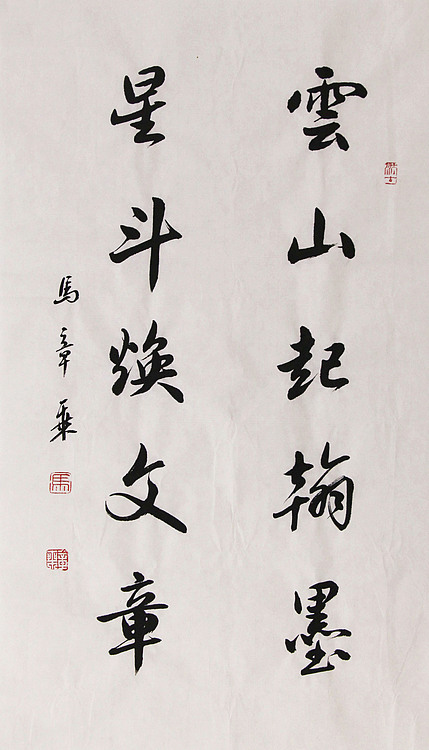 雲山起翰墨
星斗焕文章
馬章乘